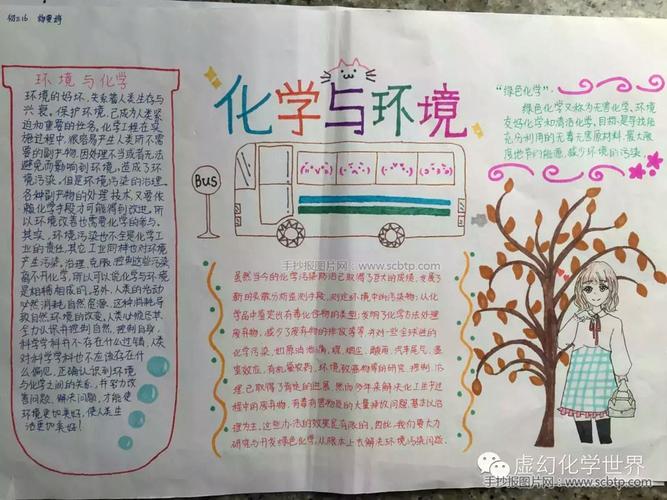 化学与环境
环境与化学
环境的好坏,关系着人类生存与
兴衰。保护环境,已成为人类紧
迫和重要的任务。化学工程在实
施过程中,很容易产生人类所不需
要的副产物。因处理不当或者无法
避免而影响到环境,造成了环
境污染。但是环境污染的治理,
各种副产物的处理技术,又要依
赖化学才可能得到改进。所
以环境改善也需要化学的参与。
其实,环境污染也不全是化学工
业的责任,其它工业同样也对环境
产生污染。治理、克服、控制这些污染
离不开化学。所以可以说化学与环境
是相辅相成的。另外,人类的活动
必然消耗自然资源。这种消耗导
致自然环境的改变。人类必须尽其
全力认识并控制自然,控制自身。
科学学科并不存在什么过错,人类
对科学学科也不应该存在什
么偏见。正确认识到环境
与化学之间的关系,并努力改
善问题,解决问题,才能使
环境更加美好,使人类生
活更加美好!
Bus
手抄报图片网:www.scbtp.com
虽然当今的化学污染防治已取得了巨大的成绩,发展了
新的痕微分析监测手段,测定环境中的污染物;从化
学品中鉴定出有毒化合物的类型;发明了化学方法处理
废弃物,减少了废弃物的排放等等,并对一些全球性的
化学污染,如原油泄漏、煤、烟尘、酸雨、汽车尾气、温
室效应、有机氯农药、环境致畸物等的研究、控制、治
理,已取得了有史的进展。然而多年来解决化工生产过
程中的废弃物,有毒有害物质的大量排放问题,基本以治
理为主,这些办法的效果是有限的。因此,我们要大力
研究与开发绿色化学,从根本上去解决环境污染问题。
“绿色化学”:
绿色化学又称为无害化学、环境
友好化学和清洁化学。目标:是寻找能
充分利用的无毒无害原材料,最大限
度地节约能源,减少环境的污染。
虚幻化学世界
手抄报图片网:www.scbtp.com